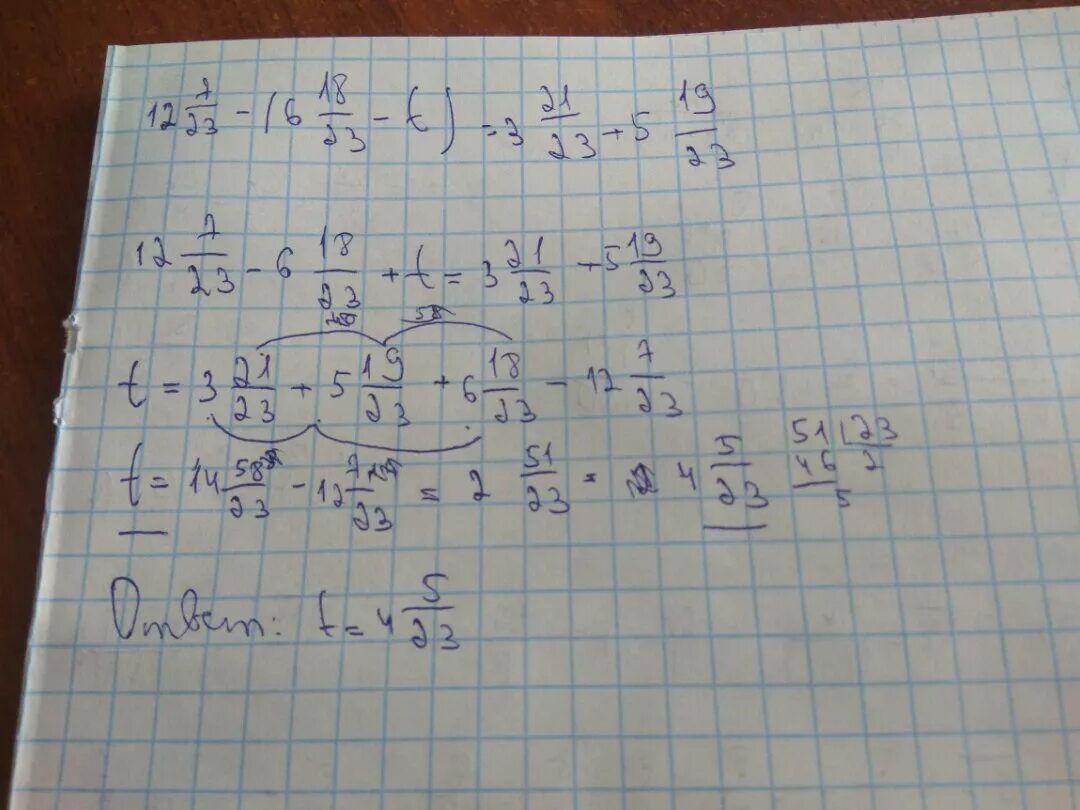 12 7/23 - (6 18/23 - t) = 3 21/23 + 5 19/23
12 7/23 - 6 18/23 + t = 3 21/23 + 5 19/23
58
t = 3 21/23 + 5 19/23 + 6 18/23 - 12 7/23
t = 14 58/23 - 12 7/23 = 2 51/23 = 4 5/23
51 | 23
46 2
5
Ответ: t = 4 5/23